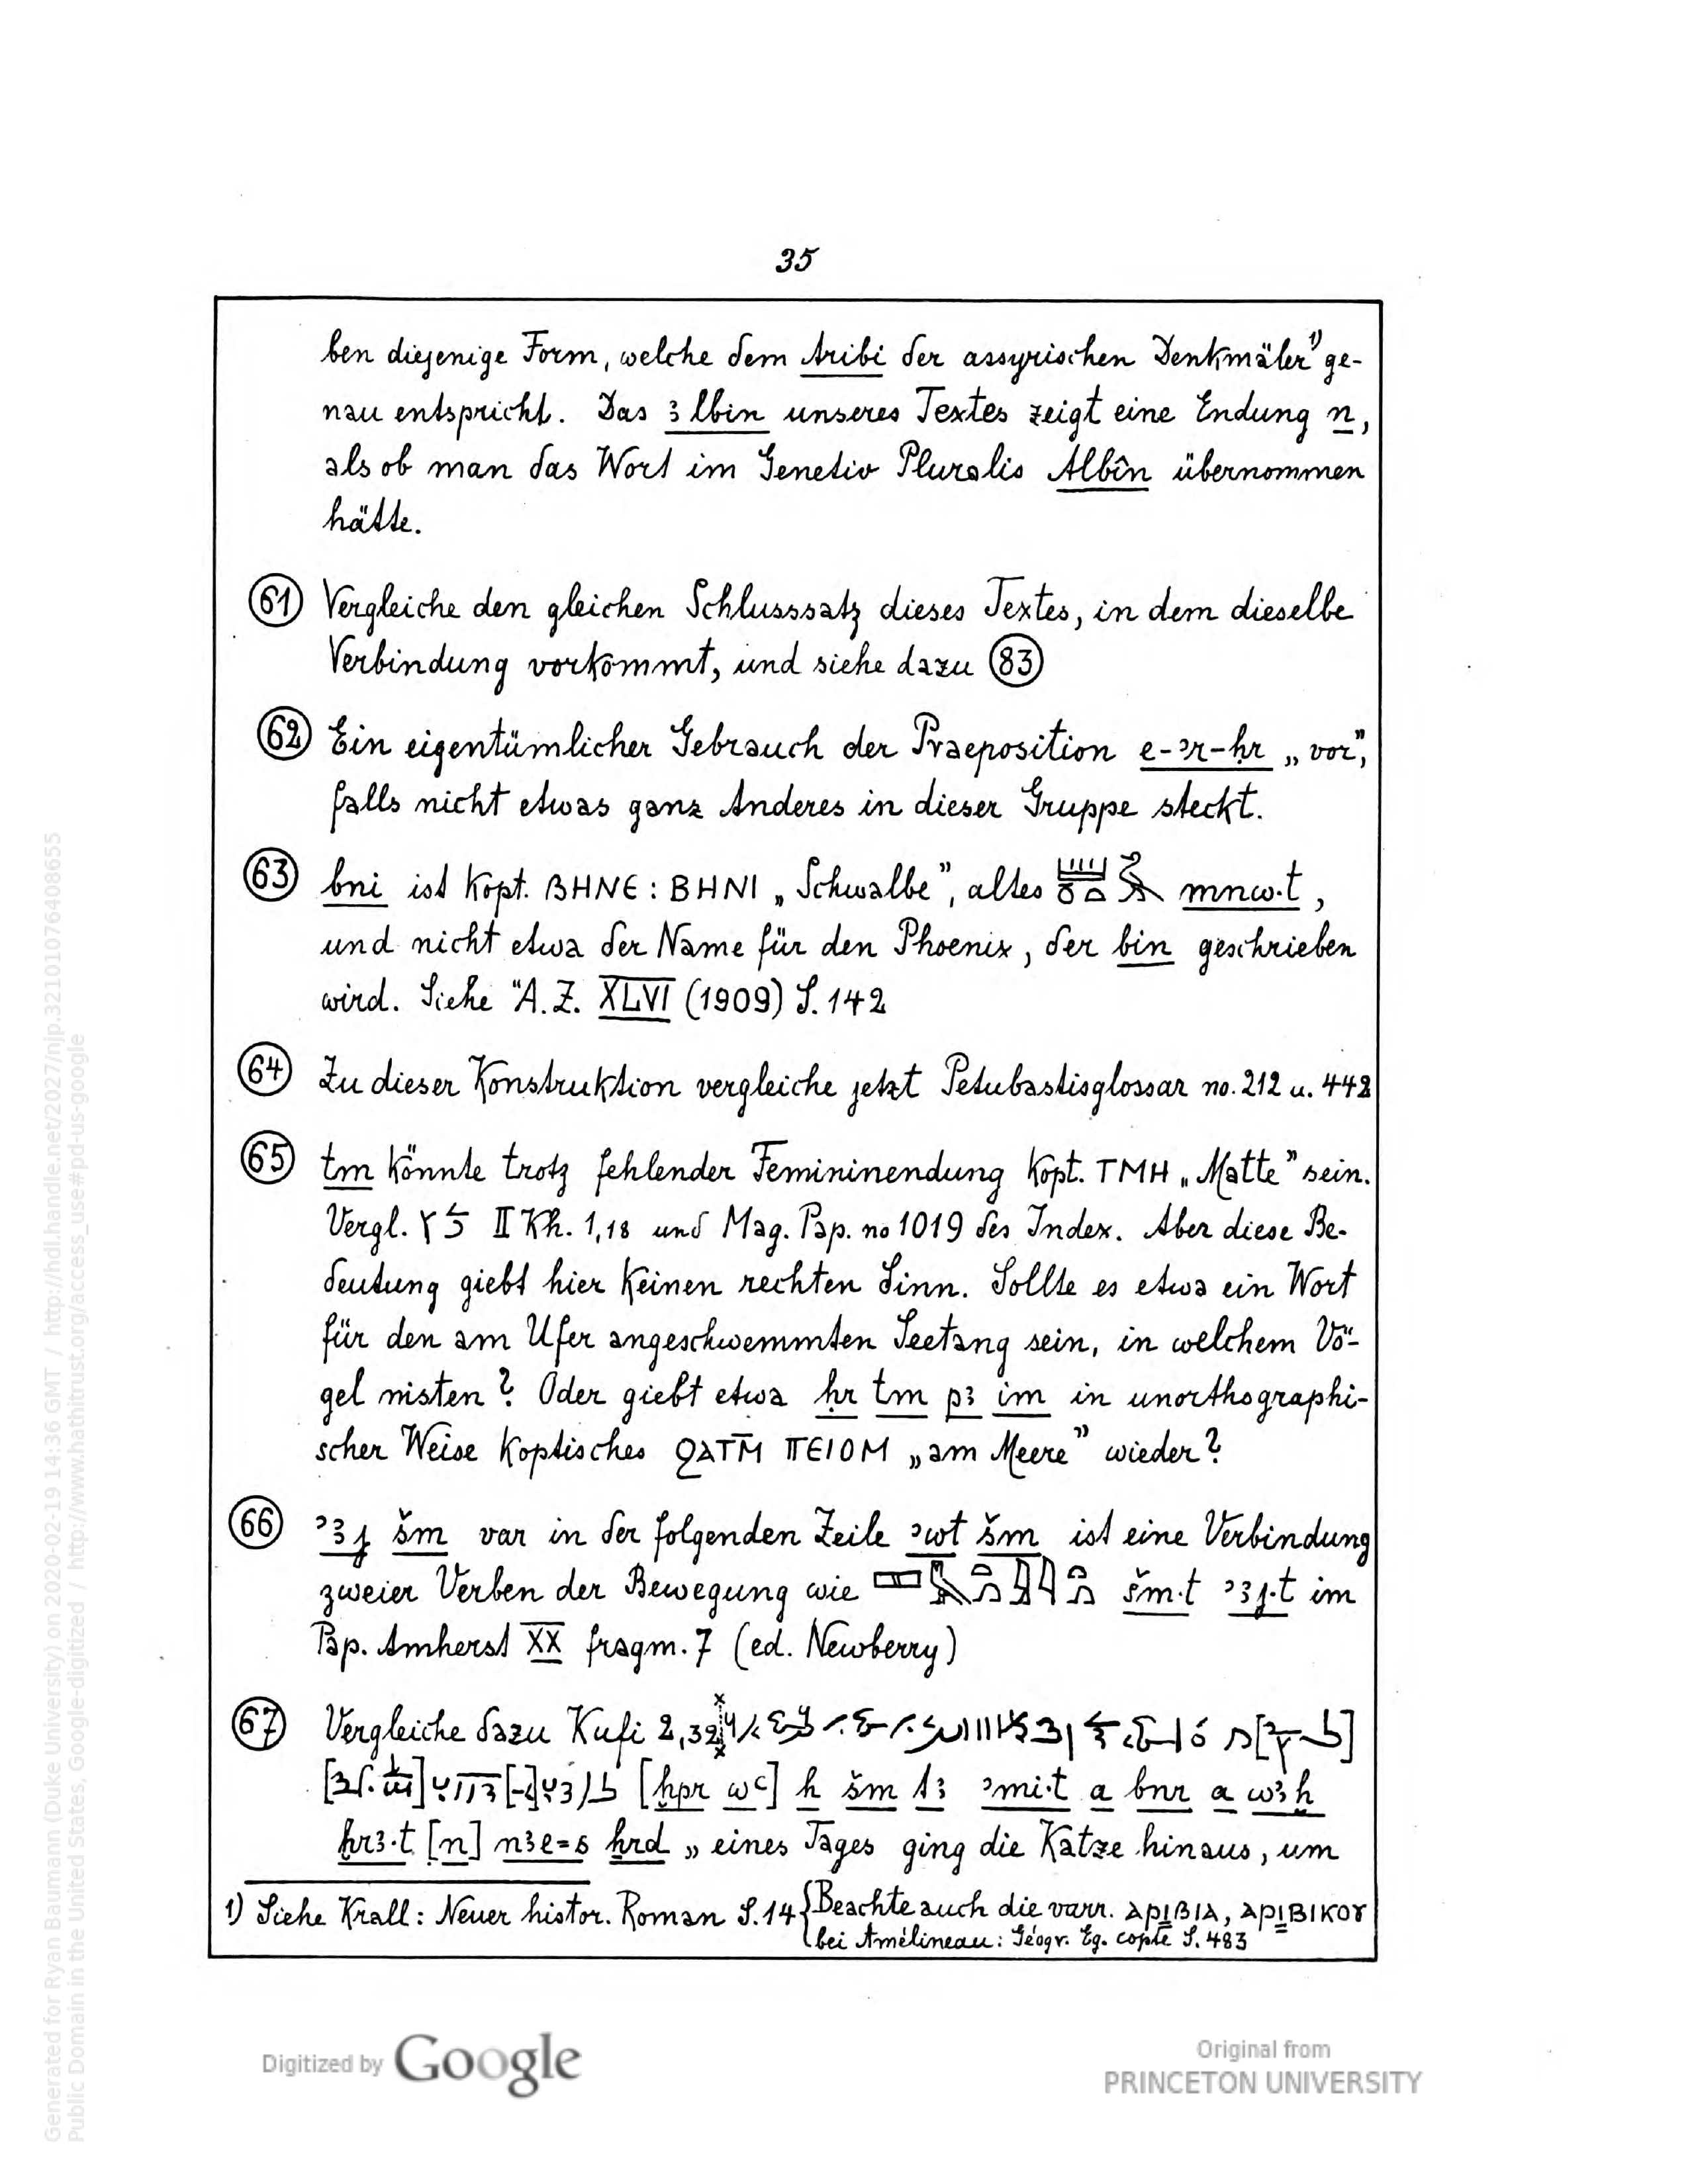 35
ben diejenige Form, welche dem Aribi der assyrischen Denkmäler¹⁾ ge-
nau entspricht. Das ꜣlbin unseres Textes zeigt eine Endung n,
als ob man das Wort im Genetiv Pluralis Albîn übernommen
hätte.
61 Vergleiche den gleichen Schlusssatz dieses Textes, in dem dieselbe
Verbindung vorkommt, und siehe dazu 83
62 Ein eigentümlicher Gebrauch der Praeposition e-ꜥr-ḥr „vor",
falls nicht etwas ganz Anderes in dieser Gruppe steckt.
63 bni ist kopt. ⲂⲎⲚⲈ : ⲂⲎⲚⲒ „Schwalbe", altes mnw·t,
und nicht etwa der Name für den Phoenix, der bin geschrieben
wird. Siehe "A.Z. XLVI (1909) S. 142
64 Zu dieser Konstruktion vergleiche jetzt Petubastisglossar no. 212 u. 442
65 tm könnte trotz fehlender Femininendung kopt. ⲦⲘⲎ „Matte" sein.
Vergl. II Kh. 1,18 und Mag. Pap. no 1019 des Index. Aber diese Be-
deutung giebt hier keinen rechten Sinn. Sollte es etwa ein Wort
für den am Ufer angeschwemmten Seetang sein, in welchem Vö-
gel nisten? Oder giebt etwa ḥr tm pꜣ im in unorthographi-
scher Weise koptisches ϨⲀⲦⲘ̄ ⲠⲈⲒⲞⲘ „am Meere" wieder?
66 ꜥꜣj šm var in der folgenden Zeile ꜥwt šm ist eine Verbindung
zweier Verben der Bewegung wie šm·t ꜥꜣj·t im
Pap. Amherst XX fragm. 7 (ed. Newberry)
67 Vergleiche dazu Kufi 2,32
[ḫpr wꜥ] h šm tꜣ ꜥmi·t a bnr a wꜣḥ
ḫrꜣ·t [n] nꜣe=s ḫrd „eines Tages ging die Katze hinaus, um
1) Siehe Krall: Neuer histor. Roman S. 14 { Beachte auch die varr. ⲀⲢⲒⲂⲒⲀ, ⲀⲢⲒⲂⲒⲔⲞⲨ
bei Amélineau: Géogr. Eg. copte S. 483
Digitized by Google
Original from
PRINCETON UNIVERSITY
Generated for Ryan Baumann (Duke University) on 2020-02-19 14:36 GMT / http://hdl.handle.net/2027/njp.32101076408655
Public Domain in the United States, Google-digitized / http://www.hathitrust.org/access_use#pd-us-google